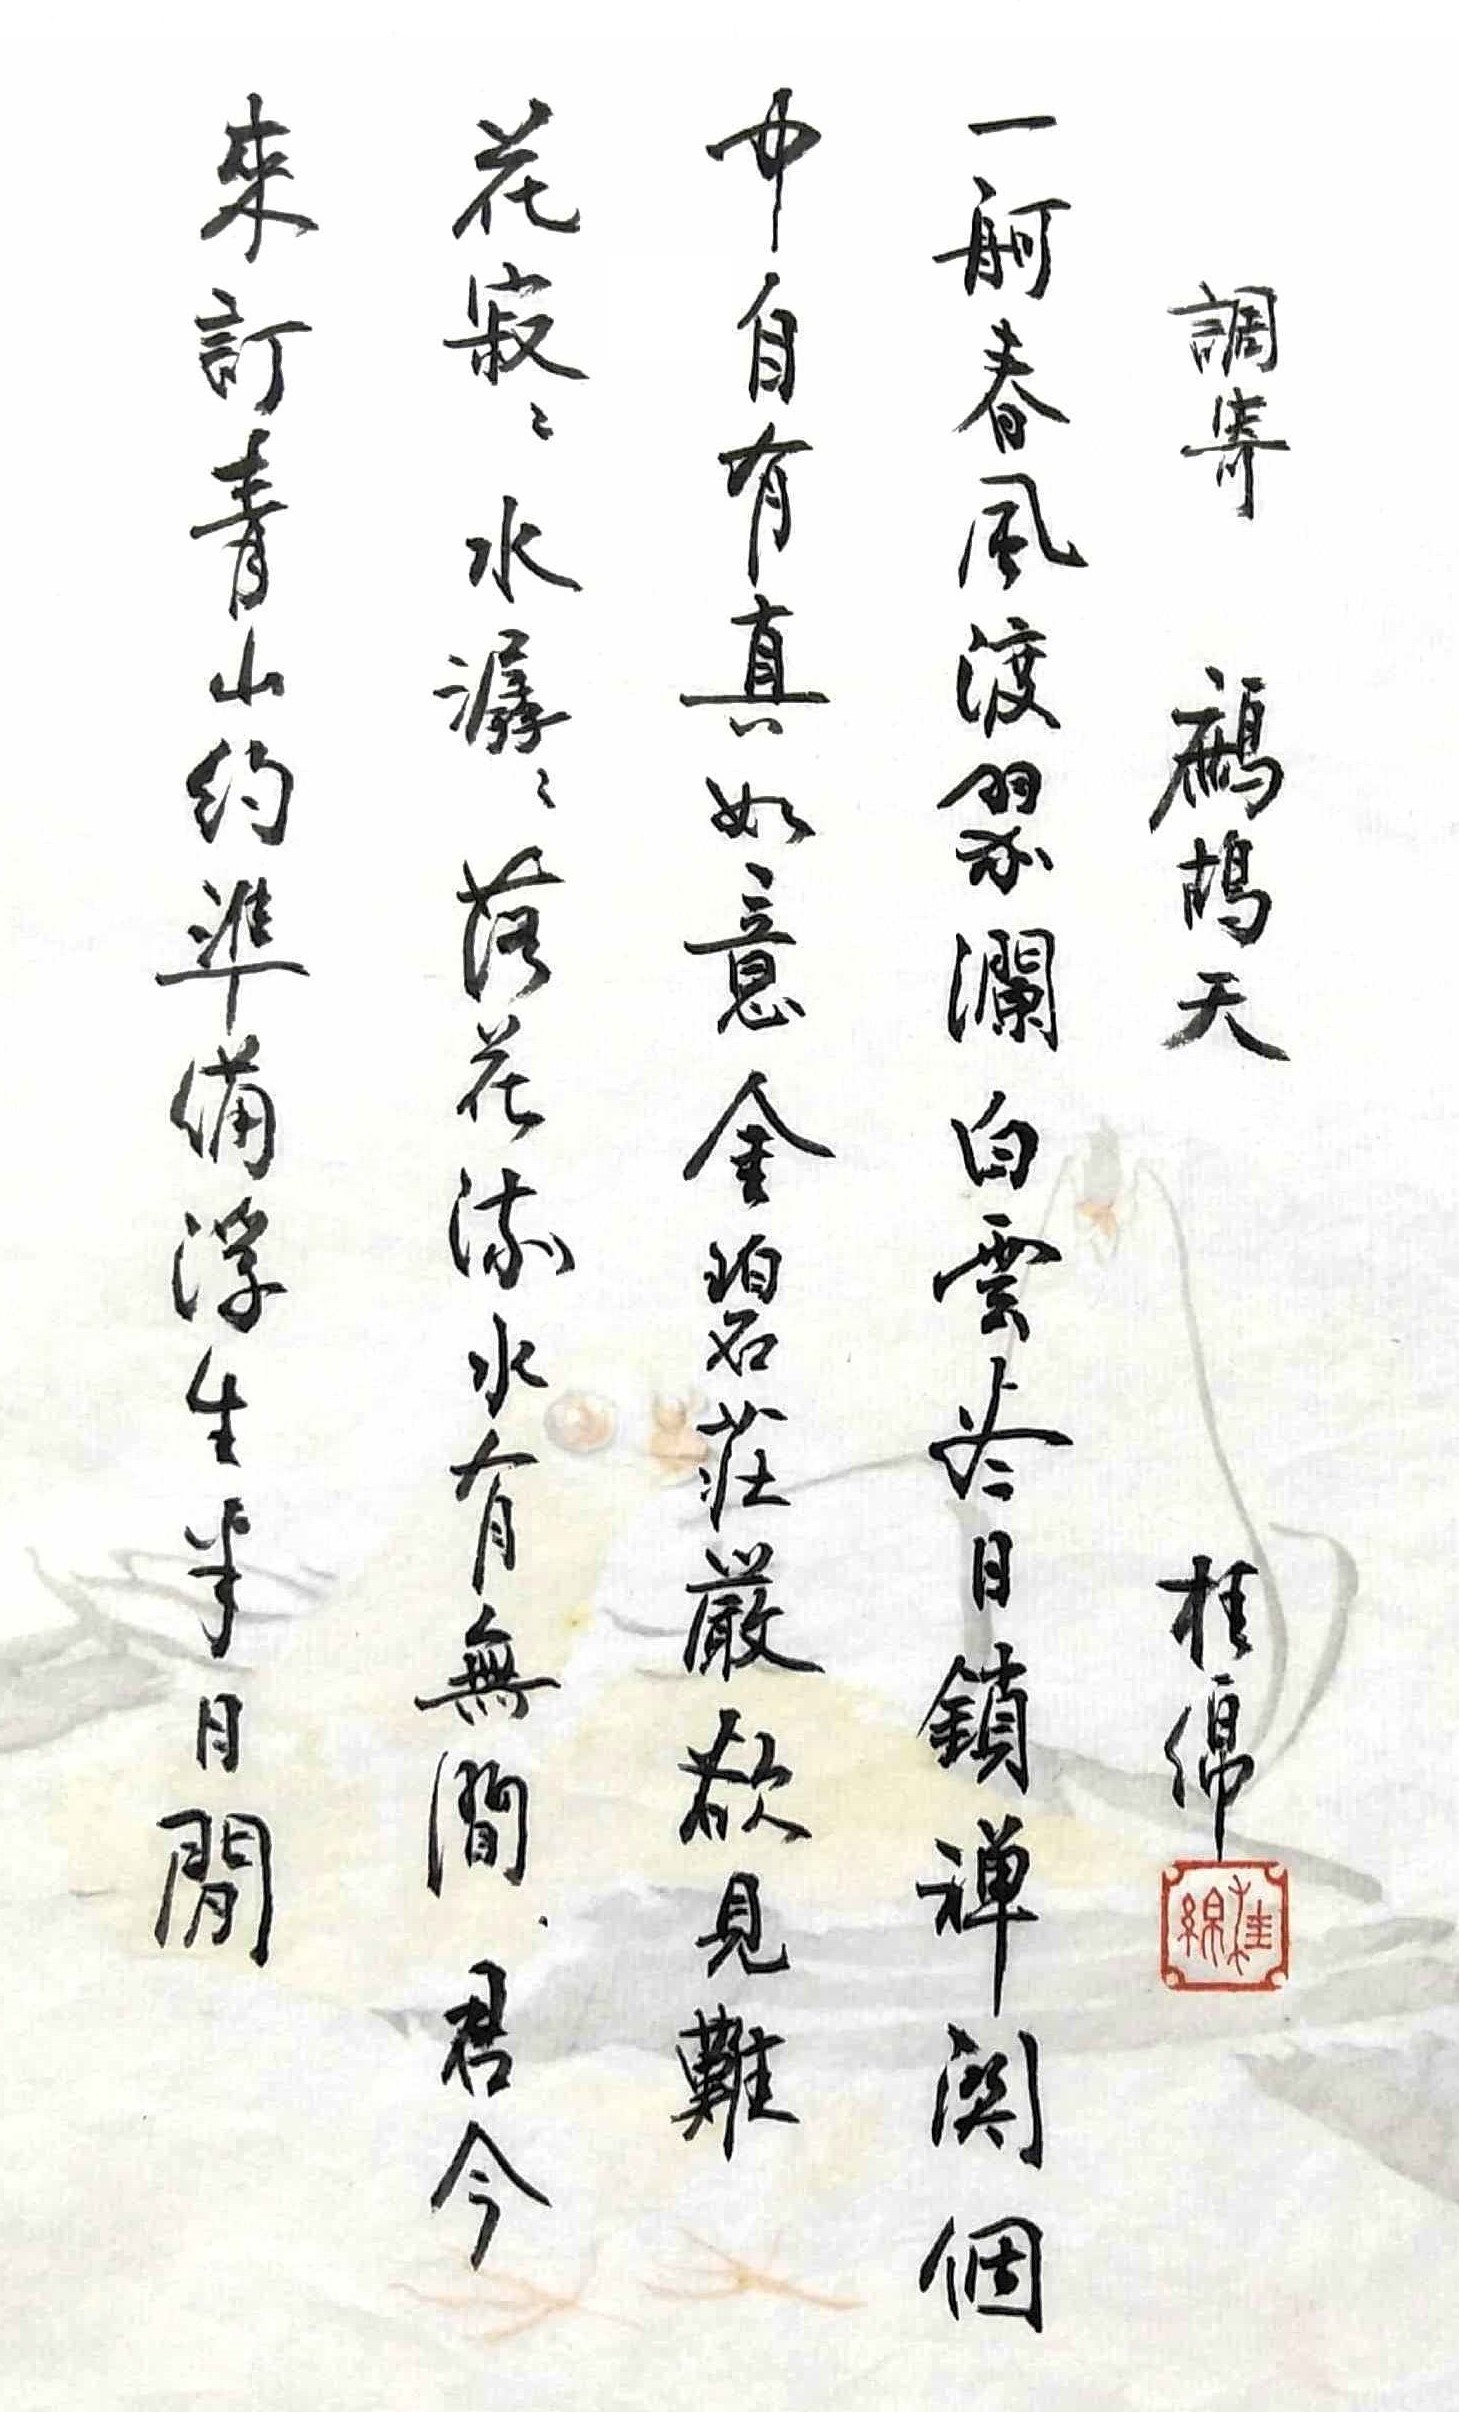 調寄 鷓鴣天 桂綿
桂綿
一舸春風渡翠瀾白雲尽日鎖禅関個
中自有真如意金碧莊嚴欲見難
花寂〻水潺〻落花流水有無間、君今
來訂青山約準備浮生半日閒